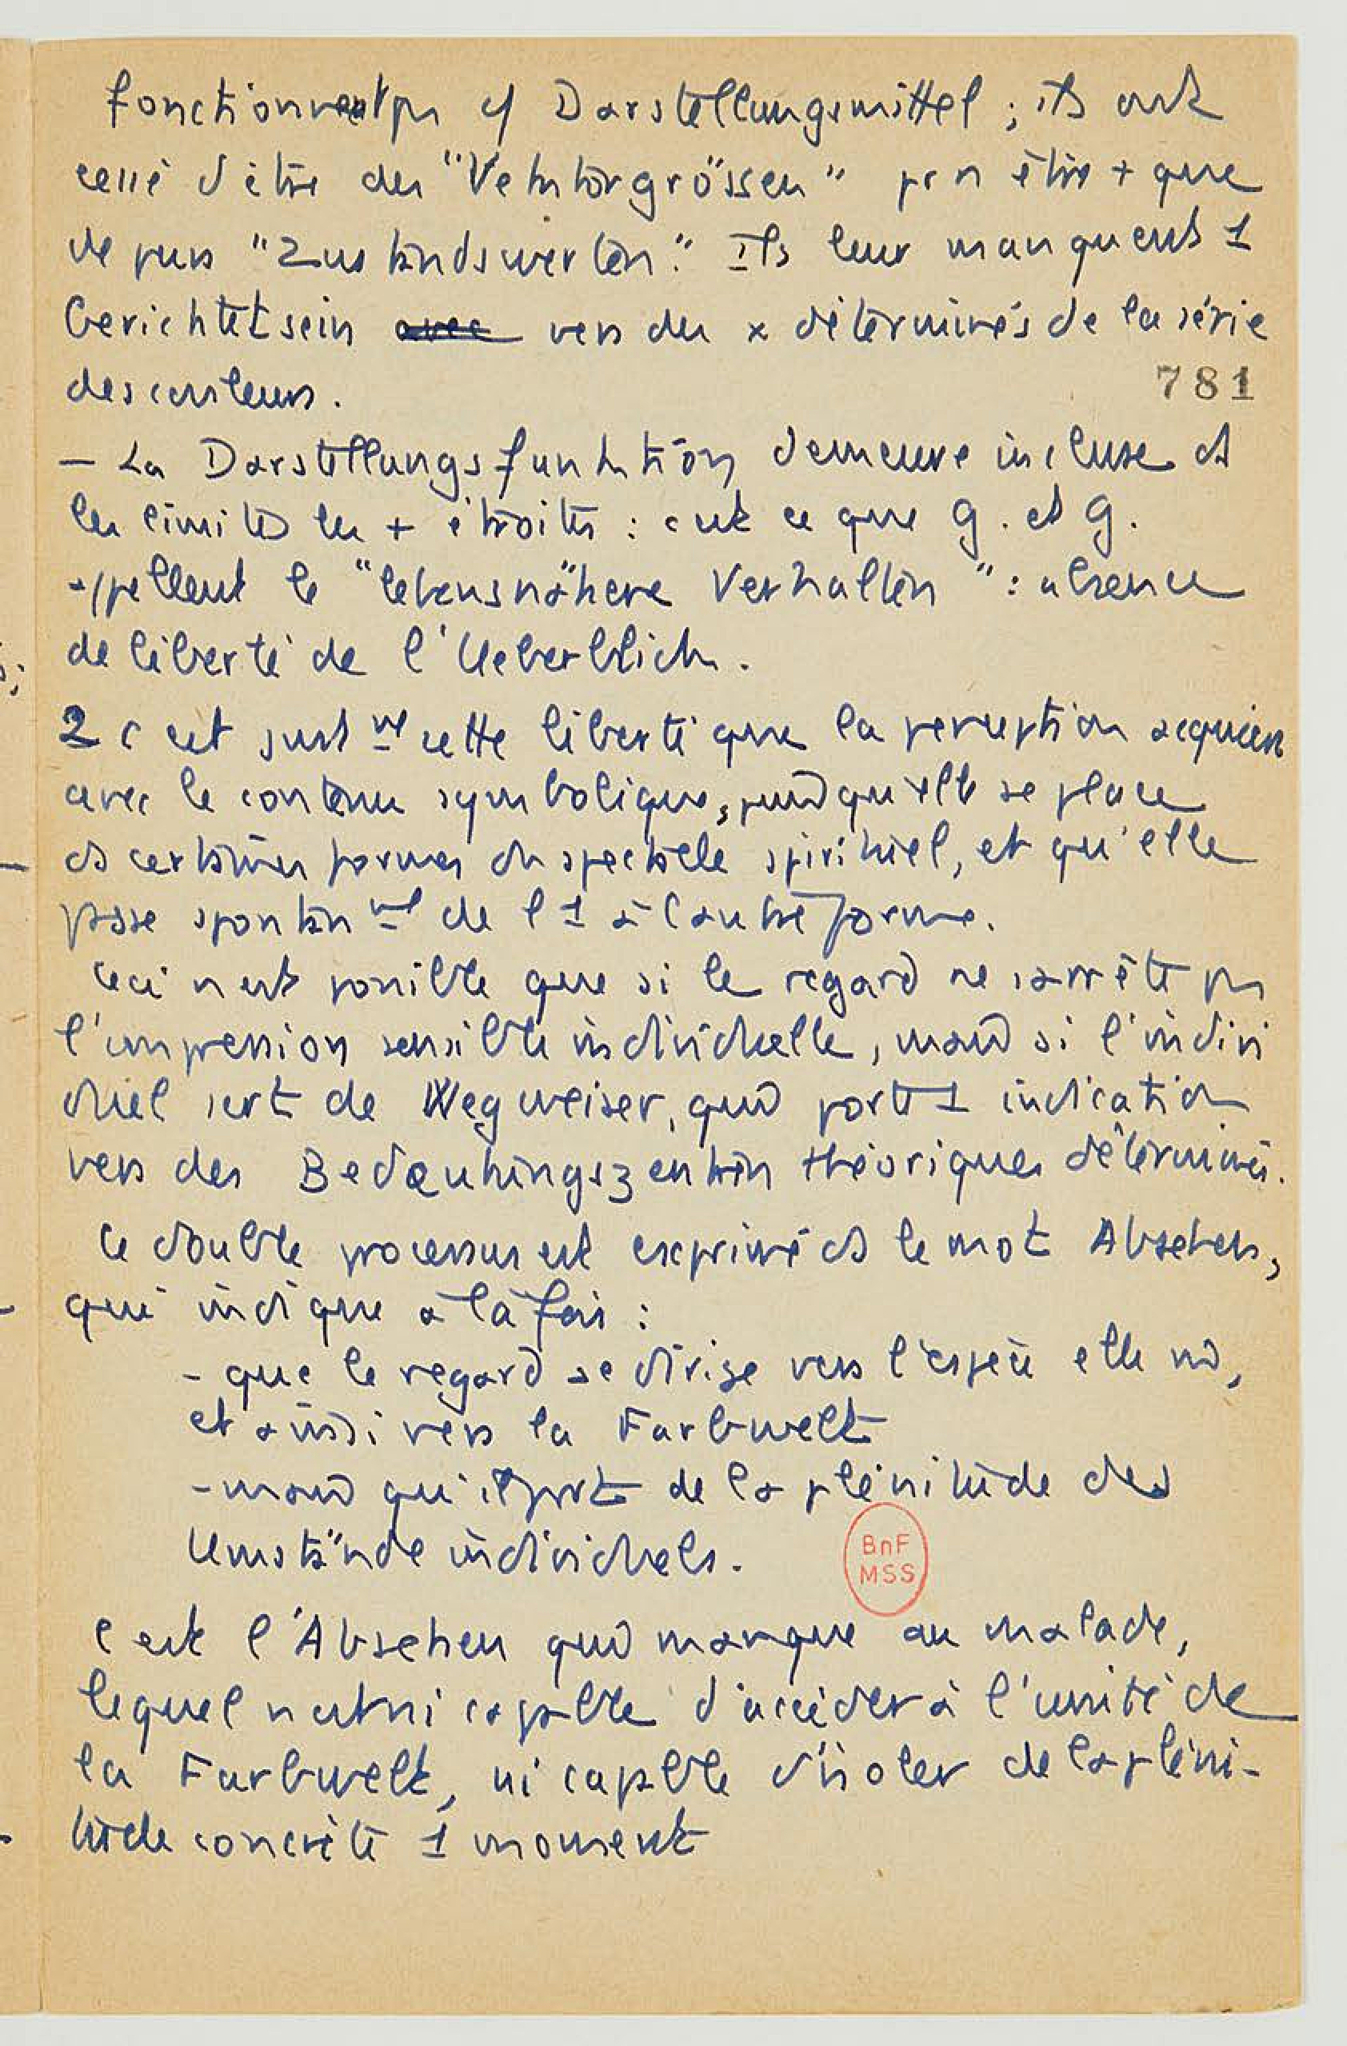 fonctionnent pr cf Darstellungsmittel ; ils ont
cessé d'être des "Vektorgrössen" pr n'être + que
de purs "Zustandswerten." Ils leur manquent 1
Gerichtetsein avec vers des x déterminés de la série
des couleurs.
781
– La Darstellungsfunktion demeure incluse ds
les limites les + étroites : c'est ce que G. et G.
appellent le "lebensnähere Verhalten" : absence
de liberté de l'Ueberblick.
2 C'est just mt cette liberté que la perception acquiert
avec le contenu symbolique, puisqu'elle se place
ds certaines formes du spectacle spirituel, et qu'elle
passe spontan mt de l'1 à l'autre forme.
Ceci n'est possible que si le regard ne s'arrête pas
l'impression sensible individuelle, mais si l'indivi
duel sert de Wegweiser, qui porte 1 indication
vers des Bedeutungszentren théoriques déterminés.
Ce double processus est exprimé ds le mot Absehen,
qui indique à la fois :
- que le regard se dirige vers l'espèce elle m̂,
et ainsi vers la Farbwelt
- mais qu'il part de la plénitude des
Umstände individuels.
BnF
MSS
C'est l'Absehen qui manque au malade,
lequel n'est ni capable d'accéder à l'unité de
la Farbwelt, ni capable d'isoler de la pléni-
tude concrète 1 moment